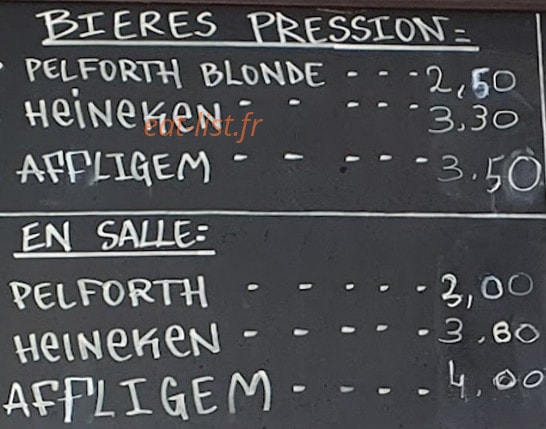 BIERES PRESSION=
PELFORTH BLONDE - - - 2,50
HEINEKEN - - - - - 3.30
eat-list.fr
AFFLIGEM - - - - - 3.50
EN SALLE:
PELFORTH - - - - - 3,00
HEINEKEN - - - - - 3.80
AFFLIGEM - - - - 4,00